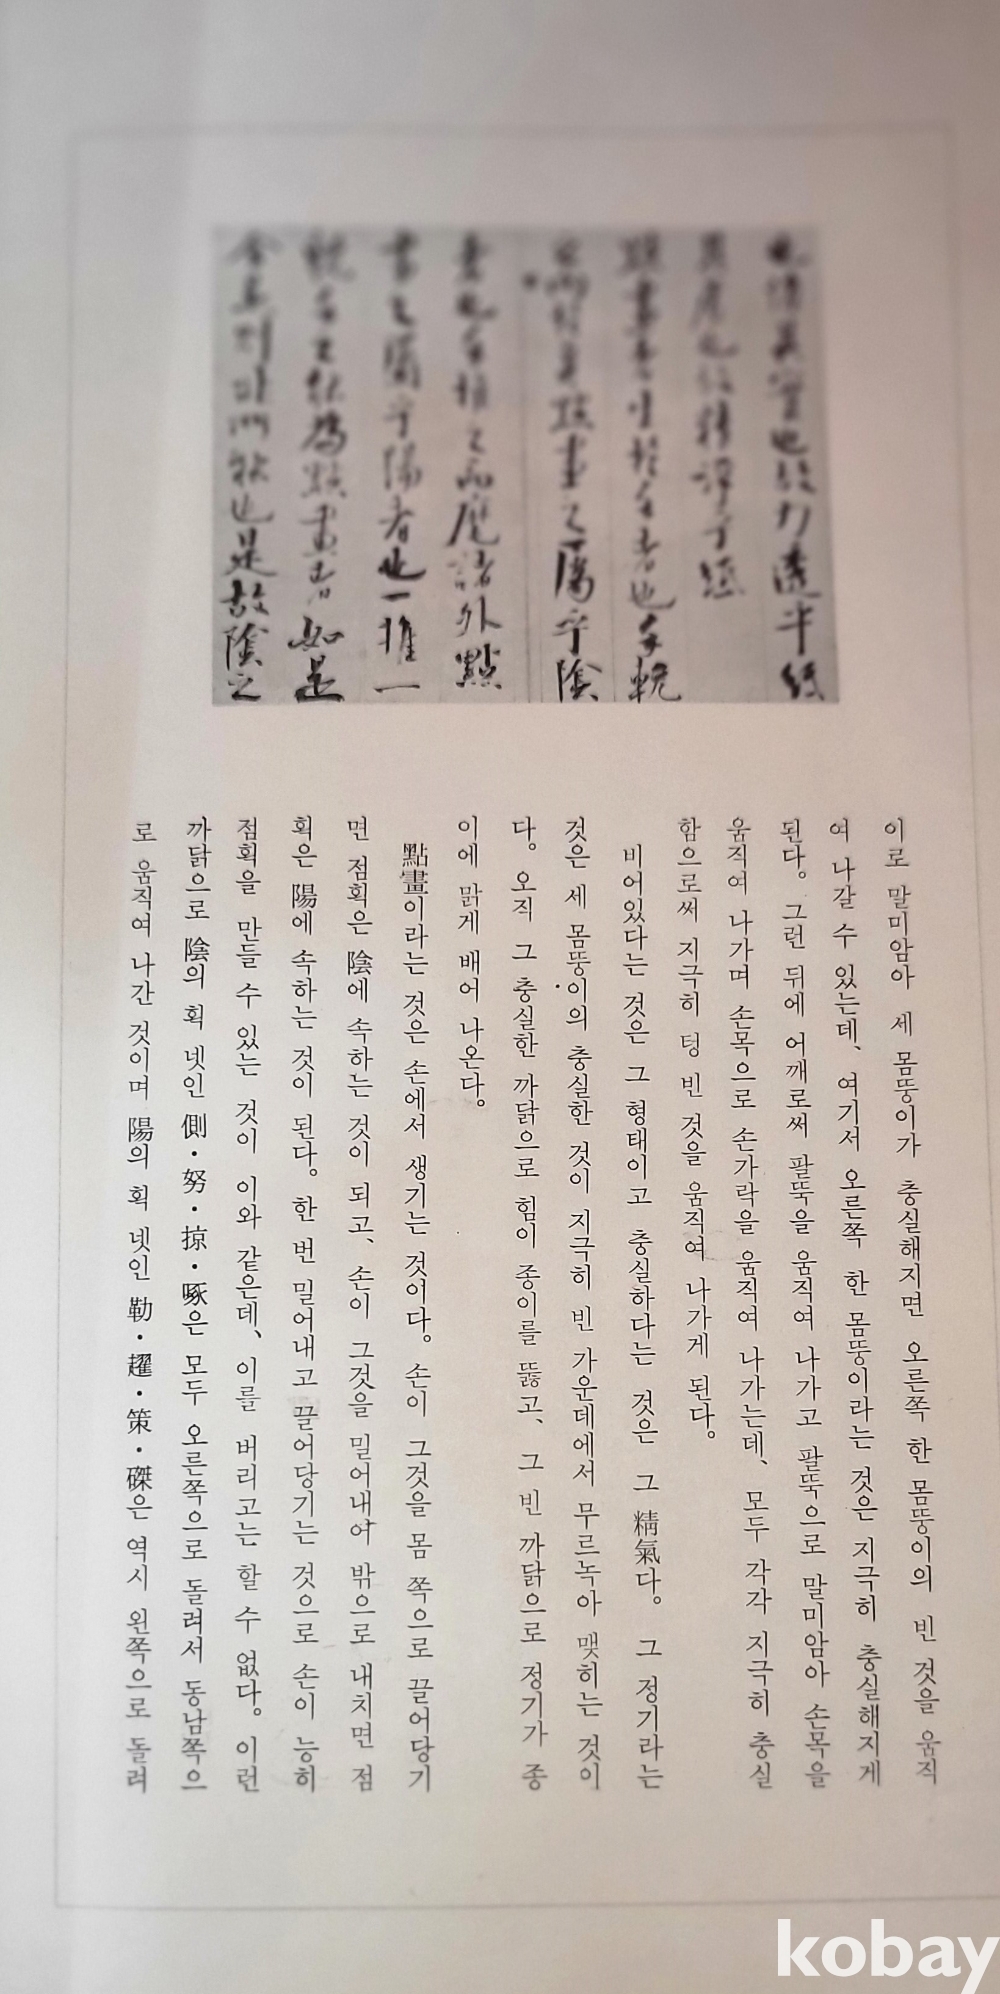 也清其實也故力透半紙
其虛也故精浮于紙
點畫者生於手者也手輓
也而於是點畫之屬乎陰
畫也手推之而麾諸外點
畫之屬乎陽者也一推一
輓手之能爲點畫者如是
舍是則
也是故陰之
이로 말미암아 세 몸뚱이가 충실해지면 오른쪽 한 몸뚱이의 빈 것을 움직
여 나갈 수 있는데、여기서 오른쪽 한 몸뚱이라는 것은 지극히 충실해지게
된다。그런 뒤에 어깨로써 팔뚝을 움직여 나가고 팔뚝으로 말미암아 손목을
움직여 나가며 손목으로 손가락을 움직여 나가는데、모두 각각 지극히 충실
함으로써 지극히 텅 빈 것을 움직여 나가게 된다。
비어있다는 것은 그 형태이고 충실하다는 것은 그 精氣다。그 정기라는
것은 세 몸뚱이의 충실한 것이 지극히 빈 가운데에서 무르녹아 맺히는 것이
다。오직 그 충실한 까닭으로 힘이 종이를 뚫고、그 빈 까닭으로 정기가 종
이에 맑게 배어 나온다。
點畫이라는 것은 손에서 생기는 것이다。손이 그것을 몸 쪽으로 끌어당기
면 점획은 陰에 속하는 것이 되고、손이 그것을 밀어내어 밖으로 내치면 점
획은 陽에 속하는 것이 된다。한 번 밀어내고 끌어당기는 것으로 손이 능히
점획을 만들 수 있는 것이 이와 같은데、이를 버리고는 할 수 없다。이런
까닭으로 陰의 획 넷인 側・努・掠・啄은 모두 오른쪽으로 돌려서 동남쪽으
로 움직여 나간 것이며 陽의 획 넷인 勒・趯・策・磔은 역시 왼쪽으로 돌려
kobay